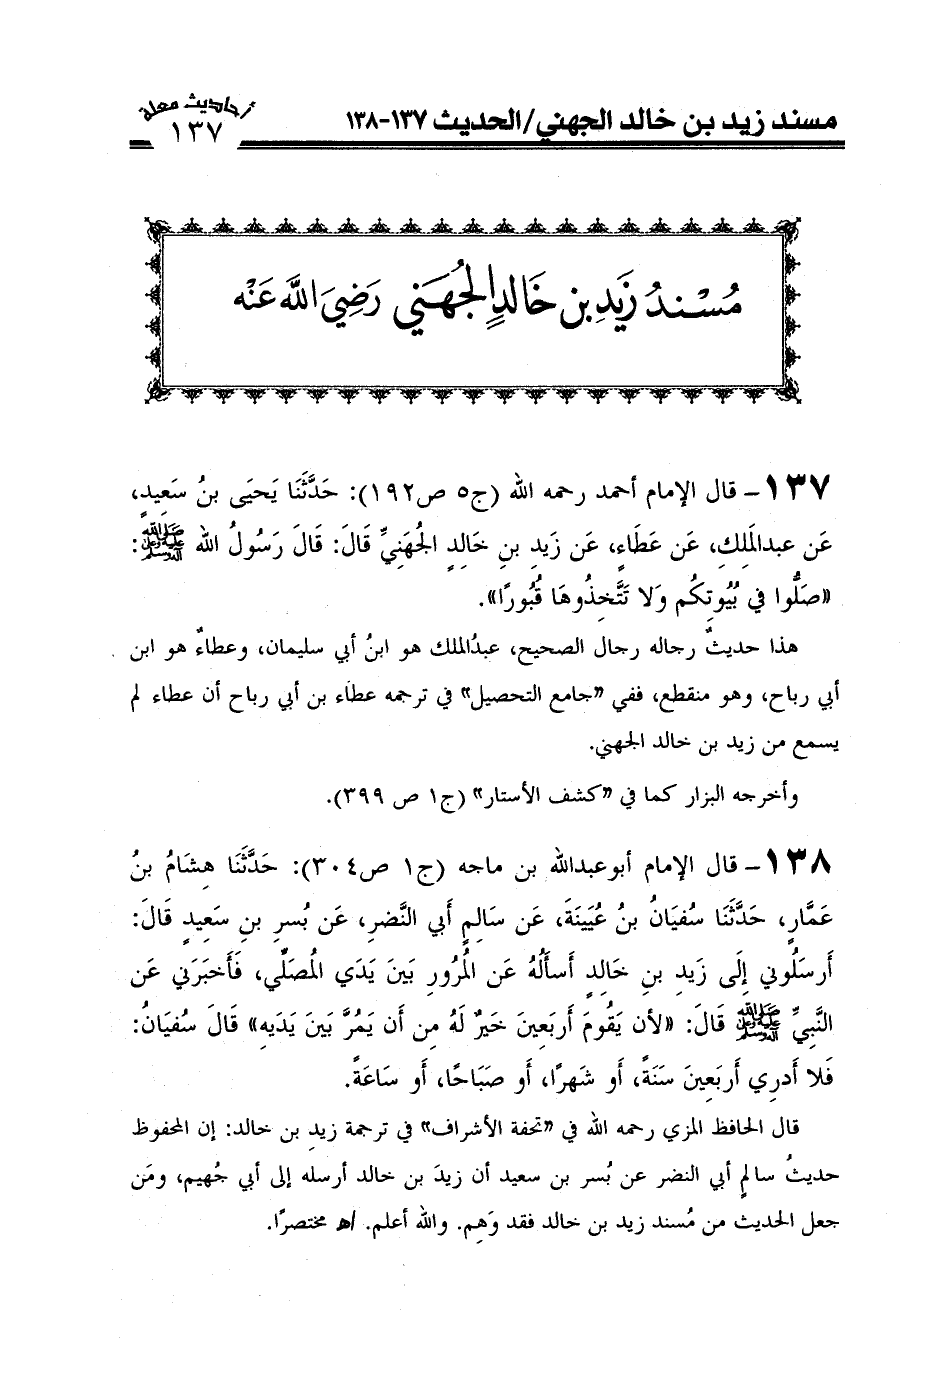 مسند زيد بن خالد الجهني/الحديث ١٣٧-١٣٨
أحاديث معلة
١٣٧
مُسْنَدُ زَيْدِ بن خَالدٍ الجُهَني رَضِيَ اللَّه عَنْه
١٣٧- قال الإمام أحمد رحمه الله (ج٥ ص١٩٢): حَدَّثَنَا يَحيَى بنُ سَعِيدٍ،
عَن عبدالَمِلِكِ، عَن عَطَاءٍ، عَن زَيدِ بنِ خَالِدٍ الجُهَنِيِّ قَالَ: قَالَ رَسُولُ الله ﷺ:
«صَلُّوا في بُيُوتِكُم وَلا تَتَّخِذُوهَا قُبُورًا».
هذا حديثٌ رجاله رجال الصحيح، عبدُالملك هو ابنُ أبي سليمان، وعطاءٌ هو ابن
أبي رباح، وهو منقطع، ففي «جامع التحصيل» في ترجمه عطاء بن أبي رباح أن عطاء لم
يسمع من زيد بن خالد الجهني.
وأخرجه البزار كما في «كشف الأستار» (ج١ ص ٣٩٩).
١٣٨- قال الإمام أبوعبدالله بن ماجه (ج١ ص٣٠٤): حَدَّثَنَا هِشَامُ بنُ
عَمَّارٍ، حَدَّثَنَا سُفيَانُ بنُ عُيَينَةَ، عَن سَالِمٍ أَبي النَّضرِ، عَن بُسرِ بنِ سَعِيدٍ قَالَ:
أَرسَلُوني إِلَى زَيدِ بنِ خَالِدٍ أَسأَلُهُ عَن الُمرُورِ بَينَ يَدَي الُمصَلِّي، فَأَخبَرَني عَن
النَّبِيِّ ﷺ قَالَ: «لأَن يَقُومَ أَربَعِينَ خَيرٌ لَهُ مِن أَن يَمُرَّ بَينَ يَدَيهِ» قَالَ سُفيَانُ:
فَلا أَدرِي أَربَعِينَ سَنَةً، أَو شَهرًا، أَو صَبَاحًا، أَو سَاعَةً.
قال الحافظ المزي رحمه الله في «تحفة الأشراف» في ترجمة زيدِ بن خالد: إن المحفوظ
حديثُ سالمٍ أبي النضر عن بُسر بن سعيد أن زيدَ بن خالد أرسله إلى أبي جُهيم، ومَن
جعل الحديث من مُسند زيد بن خالد فقد وَهِم. والله أعلم. اﻫ مختصرًا.